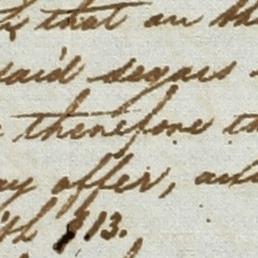 that on th
said segars
therefore th
ay offer, and
$13.